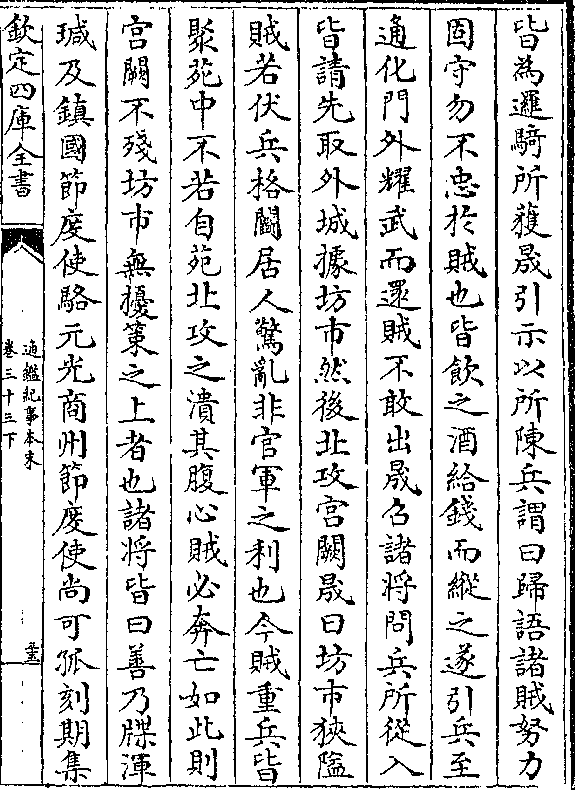 皆為邏騎所獲晟引示以所陳兵謂曰歸語諸賊努力
固守勿不忠於賊也皆飲之酒給錢而縱之遂引兵至
通化門外耀武而還賊不敢出晟召諸將問兵所從入
皆請先取外城據坊市然後北攻宮闕晟曰坊市狹隘
賊若伏兵格鬬居人驚亂非官軍之利也今賊重兵皆
聚苑中不若自苑北攻之潰其腹心賊必奔亡如此則
宮闕不殘坊市無擾策之上者也諸將皆曰善乃牒渾
瑊及鎮國節度使駱元光商州節度使尚可孤刻期集
欽定四庫全書
通鑑紀事本末
卷三十三下